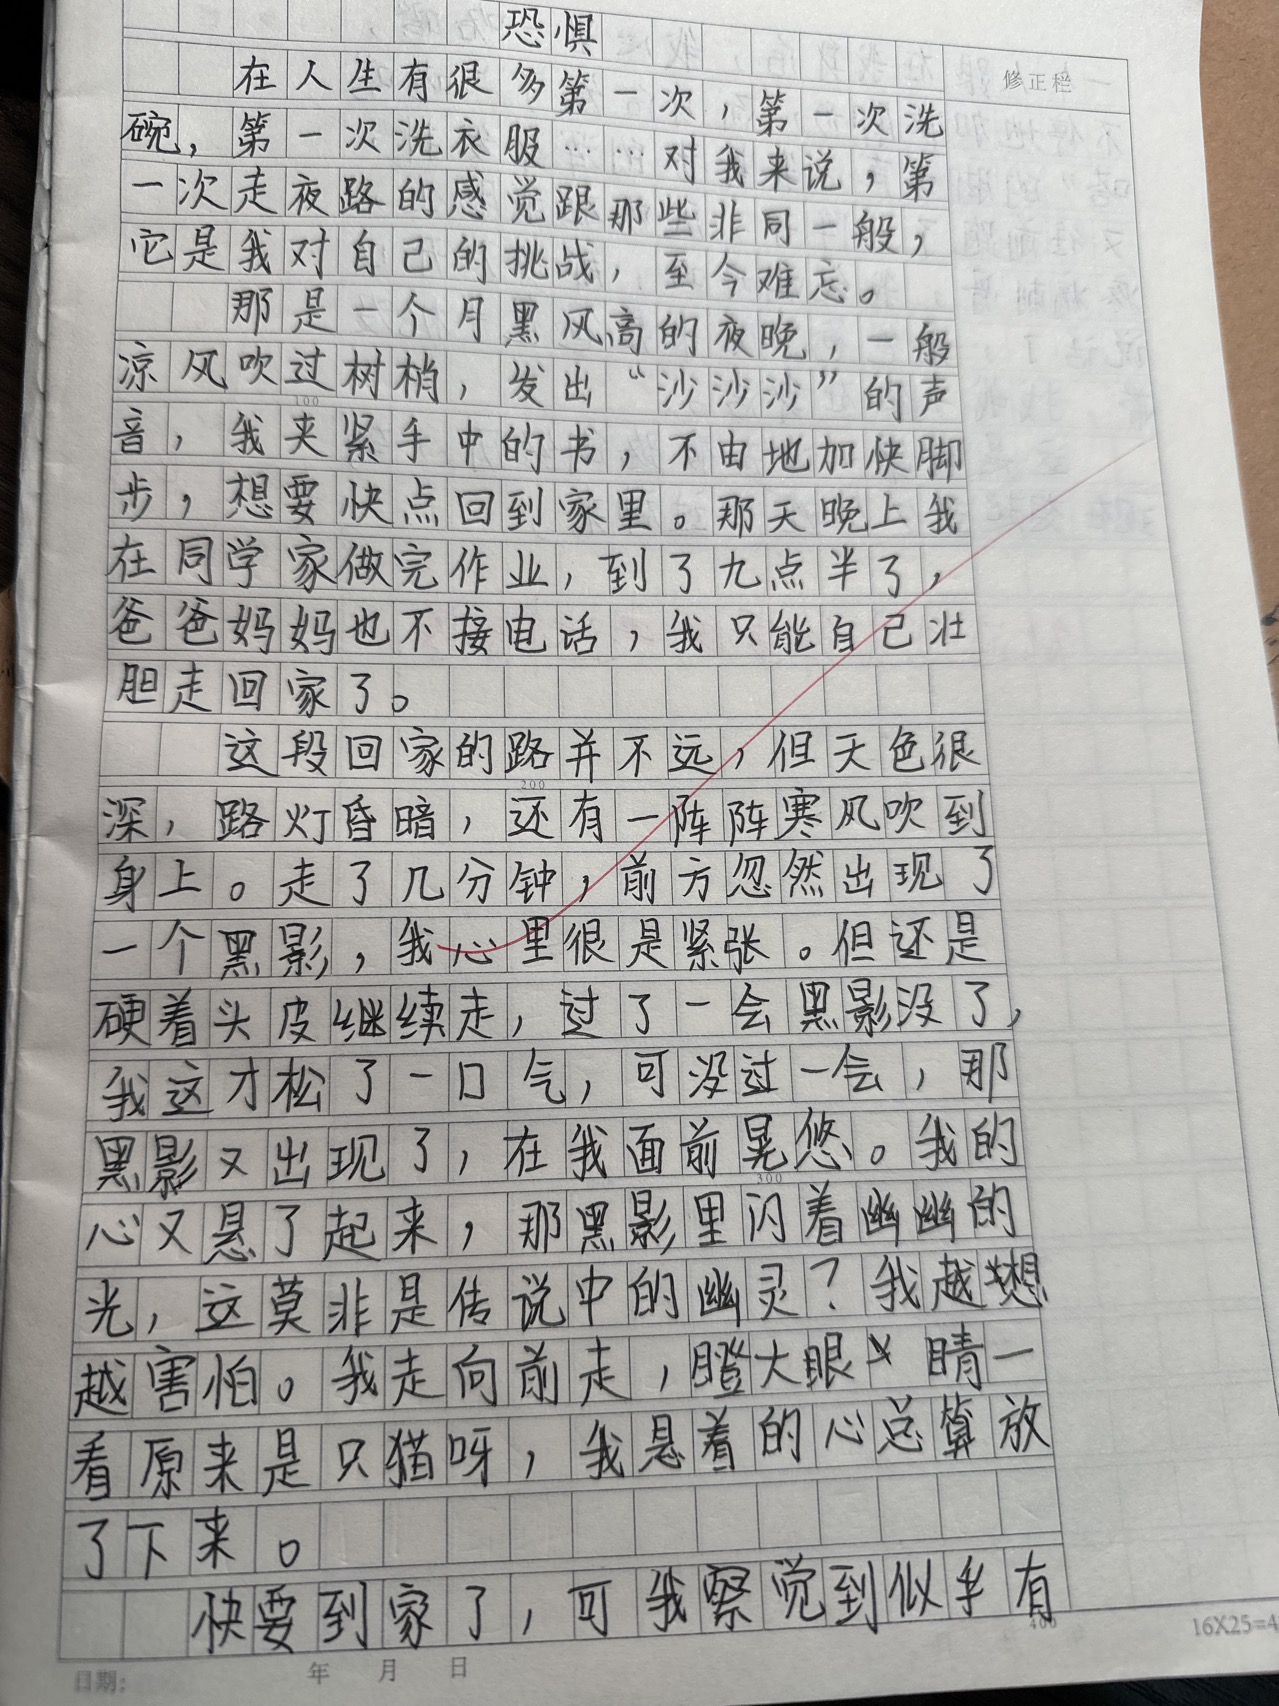 恐惧
在人生有很多第一次，第一次洗
修正栏
碗，第一次洗衣服……对我来说，第
一次走夜路的感觉跟那些非同一般，
它是我对自己的挑战，至今难忘。
那是一个月黑风高的夜晚，一般
凉风吹过树梢，发出“沙沙沙”的声
100
音，我夹紧手中的书，不由地加快脚
步，想要快点回到家里。那天晚上我
在同学家做完作业，到了九点半了，
爸爸妈妈也不接电话，我只能自己壮
胆走回家了。
这段回家的路并不远，但天色很
200
深，路灯昏暗，还有一阵阵寒风吹到
身上。走了几分钟，前方忽然出现了
一个黑影，我心里很是紧张。但还是
硬着头皮继续走，过了一会黑影没了，
我这才松了一口气，可没过一会，那
黑影又出现了，在我面前晃悠。我的
300
心又悬了起来，那黑影里闪着幽幽的
光，这莫非是传说中的幽灵？我越想
越害怕。我走向前走，瞪大眼睛一
看原来是只猫呀，我悬着的心总算放
了下来。
快要到家了，可我察觉到似乎有
400
16X25=4
日期： 年 月 日